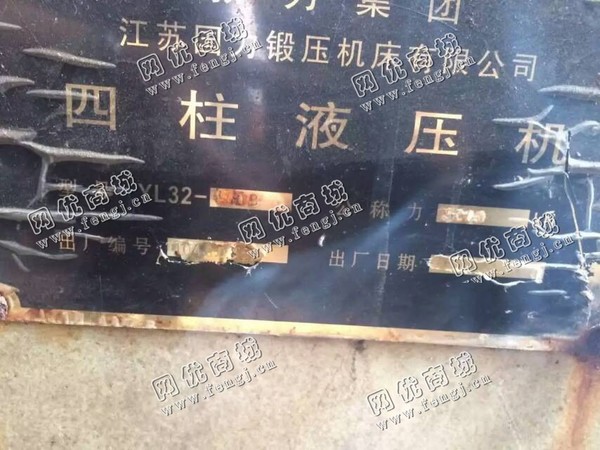 力集团
江苏国力锻压机床有限公司
四柱液压机
型号 YL32- 公称力
出厂编号 出厂日期
网优商城
www.fengj.cn
网优商城
www.fengj.cn
网优商城
www.fengj.cn
网优商城
www.fengj.cn
网优商城
www.fengj.cn
网优商城
www.fengj.cn